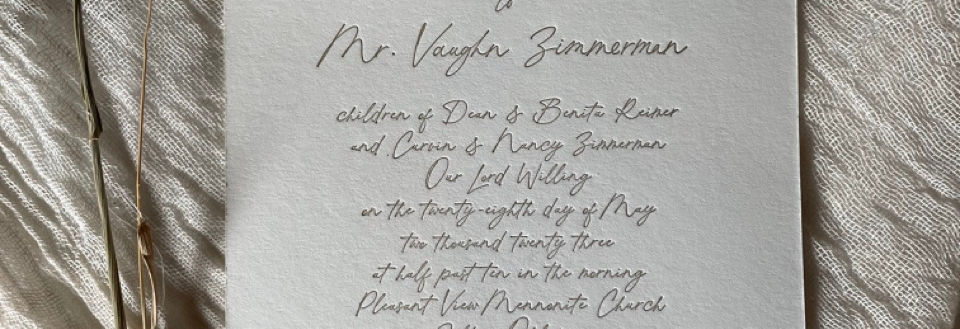 to
Mr. Vaughn Zimmerman
children of Dean & Benita Reimer
and Carvin & Nancy Zimmerman
Our Lord Willing
on the twenty-eighth day of May
two thousand twenty three
at half past ten in the morning
Pleasant View Mennonite Church